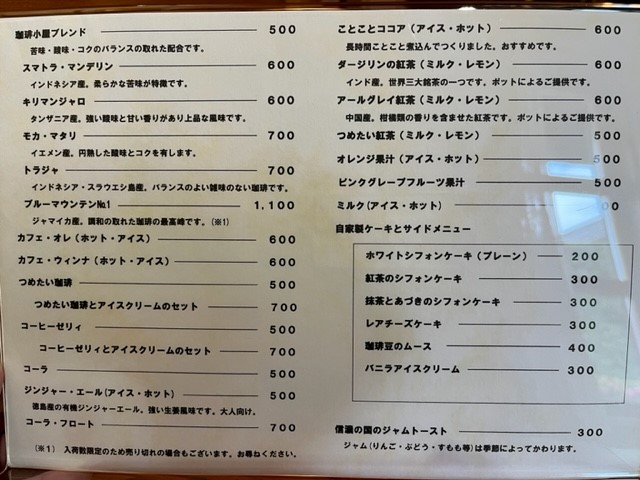 珈琲小屋ブレンド 500
苦味・酸味・コクのバランスの取れた配合です。
スマトラ・マンデリン 600
インドネシア産。柔らかな苦味が特徴です。
キリマンジャロ 600
タンザニア産。強い酸味と甘い香りがあり上品な風味です。
モカ・マタリ 700
イエメン産。円熟した酸味とコクを有します。
トラジャ 700
インドネシア・スラウエシ島産。バランスのよい雑味のない珈琲です。
ブルーマウンテン№1 1,100
ジャマイカ産。調和の取れた珈琲の最高峰です。(※1)
カフェ・オレ(ホット・アイス) 600
カフェ・ウィンナ(ホット・アイス) 600
つめたい珈琲 500
つめたい珈琲とアイスクリームのセット 700
コーヒーゼリィ 500
コーヒーゼリィとアイスクリームのセット 700
コーラ 500
ジンジャー・エール(アイス・ホット) 500
徳島産の有機ジンジャーエール。強い生姜風味です。大人向け。
コーラ・フロート 700
(※1) 入荷数限定のため売り切れの場合もございます。お尋ねください。
ことことココア(アイス・ホット) 600
長時間ことこと煮込んでつくりました。おすすめです。
ダージリンの紅茶(ミルク・レモン) 600
インド産。世界三大銘茶の一つです。ポットによるご提供です。
アールグレイ紅茶(ミルク・レモン) 600
中国産。柑橘類の香りを含ませた紅茶です。ポットによるご提供です。
つめたい紅茶(ミルク・レモン) 500
オレンジ果汁(アイス・ホット) 500
ピンクグレープフルーツ果汁 500
ミルク(アイス・ホット)
自家製ケーキとサイドメニュー
ホワイトシフォンケーキ(プレーン) 200
紅茶のシフォンケーキ 300
抹茶とあづきのシフォンケーキ 300
レアチーズケーキ 300
珈琲豆のムース 400
バニラアイスクリーム 300
信濃の国のジャムトースト 300
ジャム(りんご・ぶどう・すもも等)は季節によってかわります。